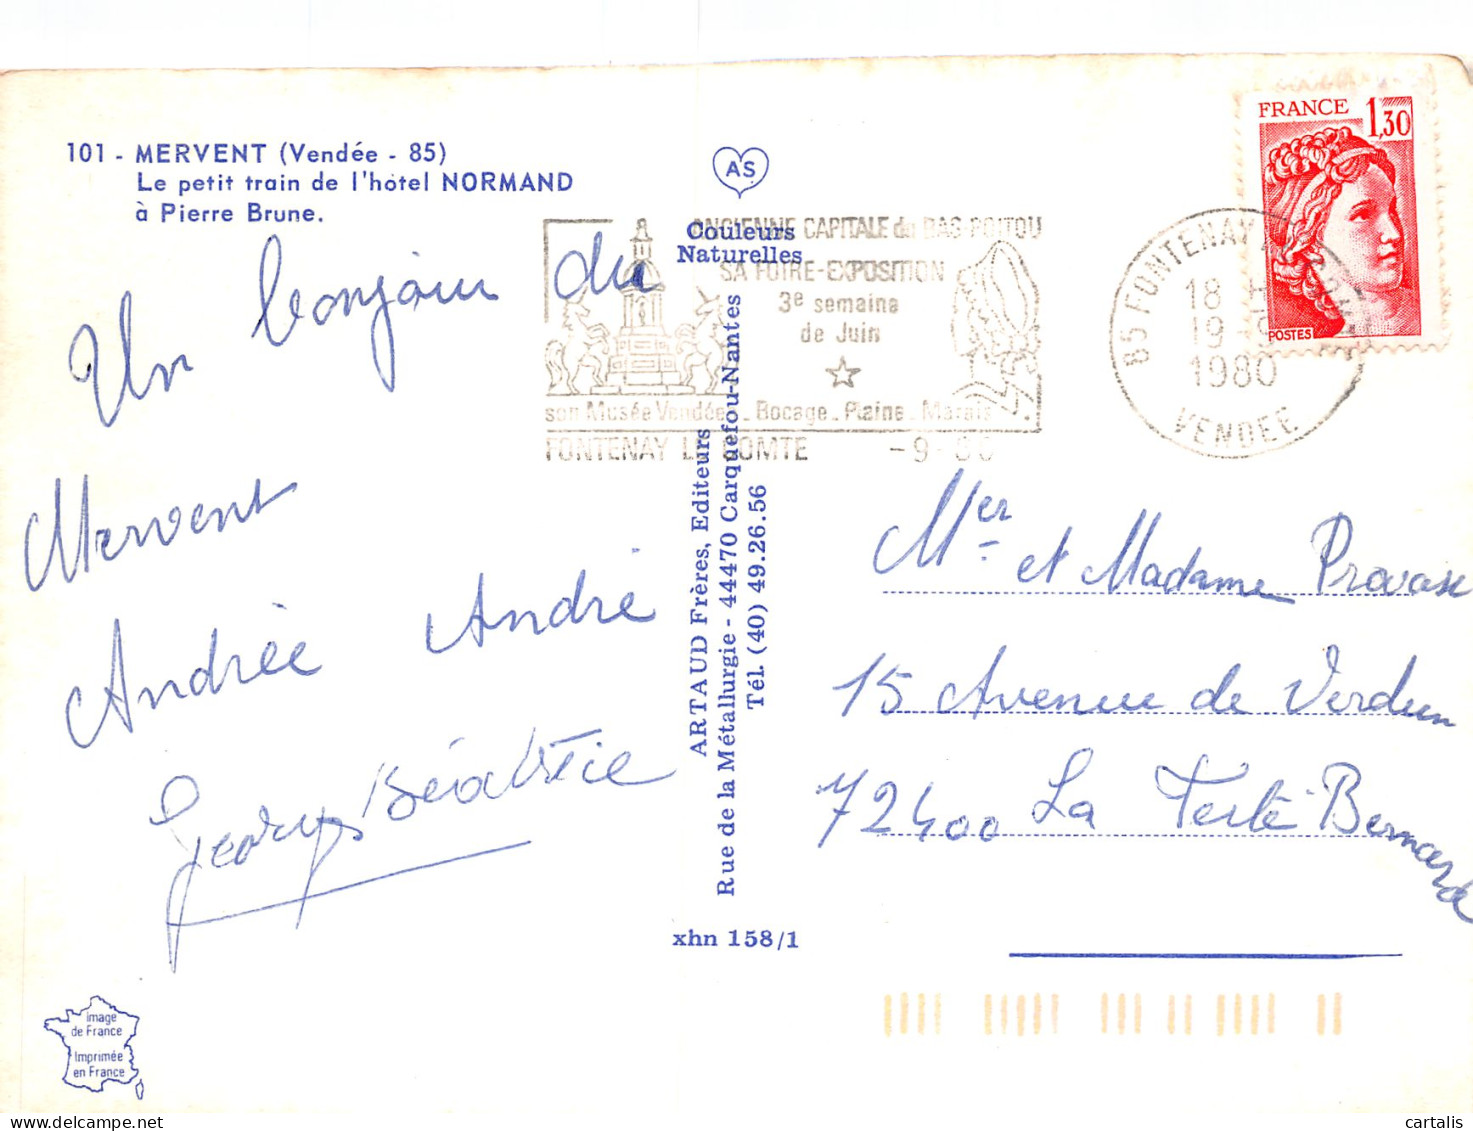 101 - MERVENT (Vendée - 85)
Le petit train de l'hôtel NORMAND
à Pierre Brune.
AS
Couleurs
Naturelles
FRANCE 1,30
POSTES
ANCIENNE CAPITALE du BAS-POITOU
SA FOIRE-EXPOSITION
3e semaine
de Juin
son Musée Vendéen - Bocage - Plaine - Marais
FONTENAY LE COMTE
85 FONTENAY
18 H
19 - 9
1980
VENDEE
Un bonjour du
Mervent
Andrée André
Georges Béatrice
ARTAUD Frères, Editeurs
Rue de la Métallurgie - 44470 Carquefou-Nantes
Tél. (40) 49.26.56
xhn 158/1
Mer et Madame
15 Avenue de Verdun
72400 La Ferté Bernard
image
de France
Imprimée
en France
cartalis